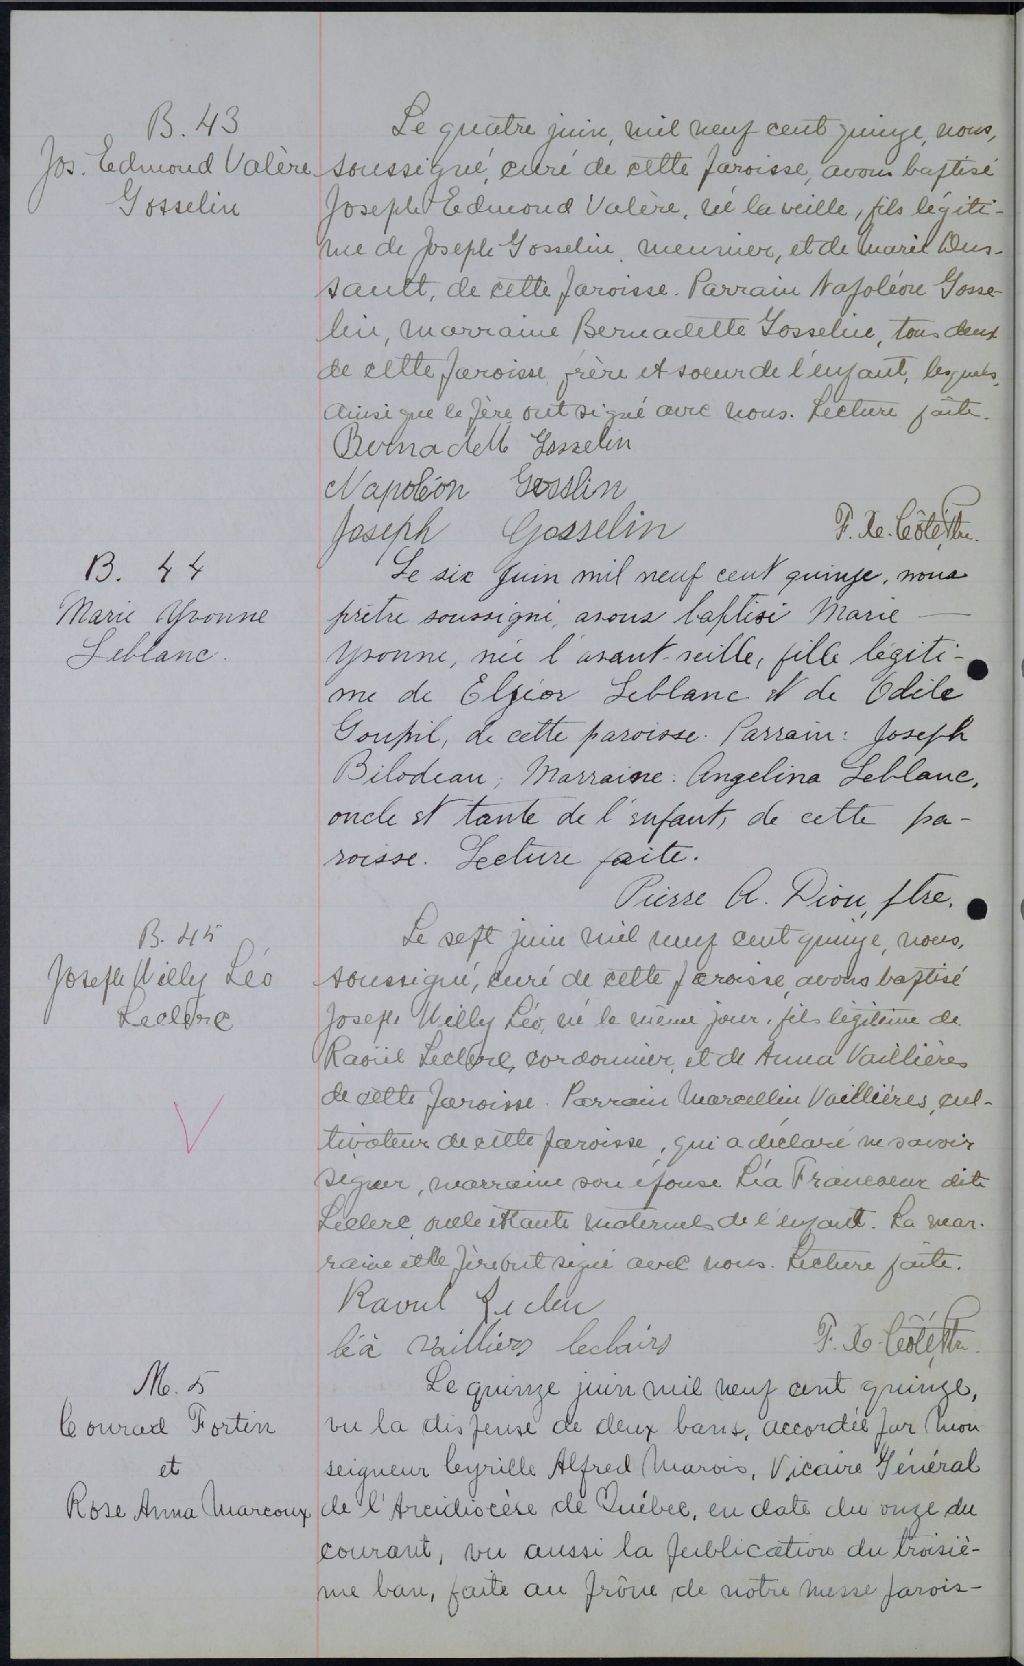 B. 43
Jos. Edmond Valère
Gosselin
Le quatre juin, mil neuf cent quinze, nous,
soussigné, curé de cette paroisse, avons baptisé
Joseph Edmond Valère, né la veille, fils légiti-
me de Joseph Gosselin, meunier, et de Marie Dus-
sault, de cette paroisse. Parrain Napoléon Gosse-
lin, marraine Bernadette Gosselin, tous deux
de cette paroisse, frère et soeur de l'enfant, lesquels,
ainsi que le père ont signé avec nous. Lecture faite.
Bernadett Gosselin
Napoléon Gosslin
Joseph Gosselin
F. X. Côté, Ptre.
B. 44
Marie Yvonne
Leblanc.
Le six Juin mil neuf cent quinze, nous
prêtre soussigné, avons baptisé Marie —
Yvonne, née l'avant-veille, fille légiti-
me de Elzéor Leblanc et de Odile
Goupil, de cette paroisse. Parrain: Joseph
Bilodeau; Marraine: Angelina Leblanc,
oncle et tante de l'enfant, de cette pa-
roisse. Lecture faite.
Pierre A. Dion, ptre.
B. 45
Joseph Willy Léo
Leclerc
Le sept juin mil neuf cent quinze, nous,
soussigné, curé de cette paroisse, avons baptisé
Joseph Willy Léo, né le même jour, fils légitime de
Raoül Leclerc, cordonnier, et de Anna Vaillières
de cette paroisse. Parrain Marcellin Vaillières, cul-
tivateur de cette paroisse, qui a déclaré ne savoir
signer, marraine son épouse Léa Francoeur dite
Leclerc, oncle et tante maternels de l'enfant. La mar-
raine et le père ont signé avec nous. Lecture faite.
Raoul
léà
F. X. Côté, Ptre.
M. 5
Conrad Fortin
et
Rose Anna Marcoux
Le quinze juin mil neuf cent quinze,
vu la dispense de deux bans, accordée par Mon
seigneur Cyrille Alfred Marois, Vicaire Général
de l'Arcidiocèse de Québec, en date du onze du
courant, vu aussi la publication du troisiè-
me ban, faite au prône de notre messe parois-